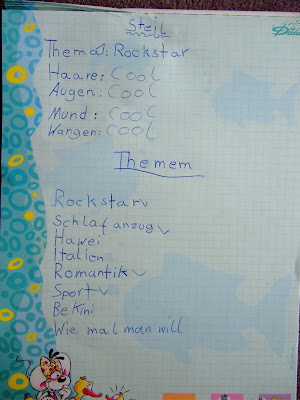 Steil
Thema1: Rockstar
Haare: COOL
Augen: COOL
Mund: COOL
Wangen: COOL
Themem
Rockstar✓
Schlafanzug✓
Hawei
Italien
Romantik✓
Sport✓
Bekini
Wie mal man will